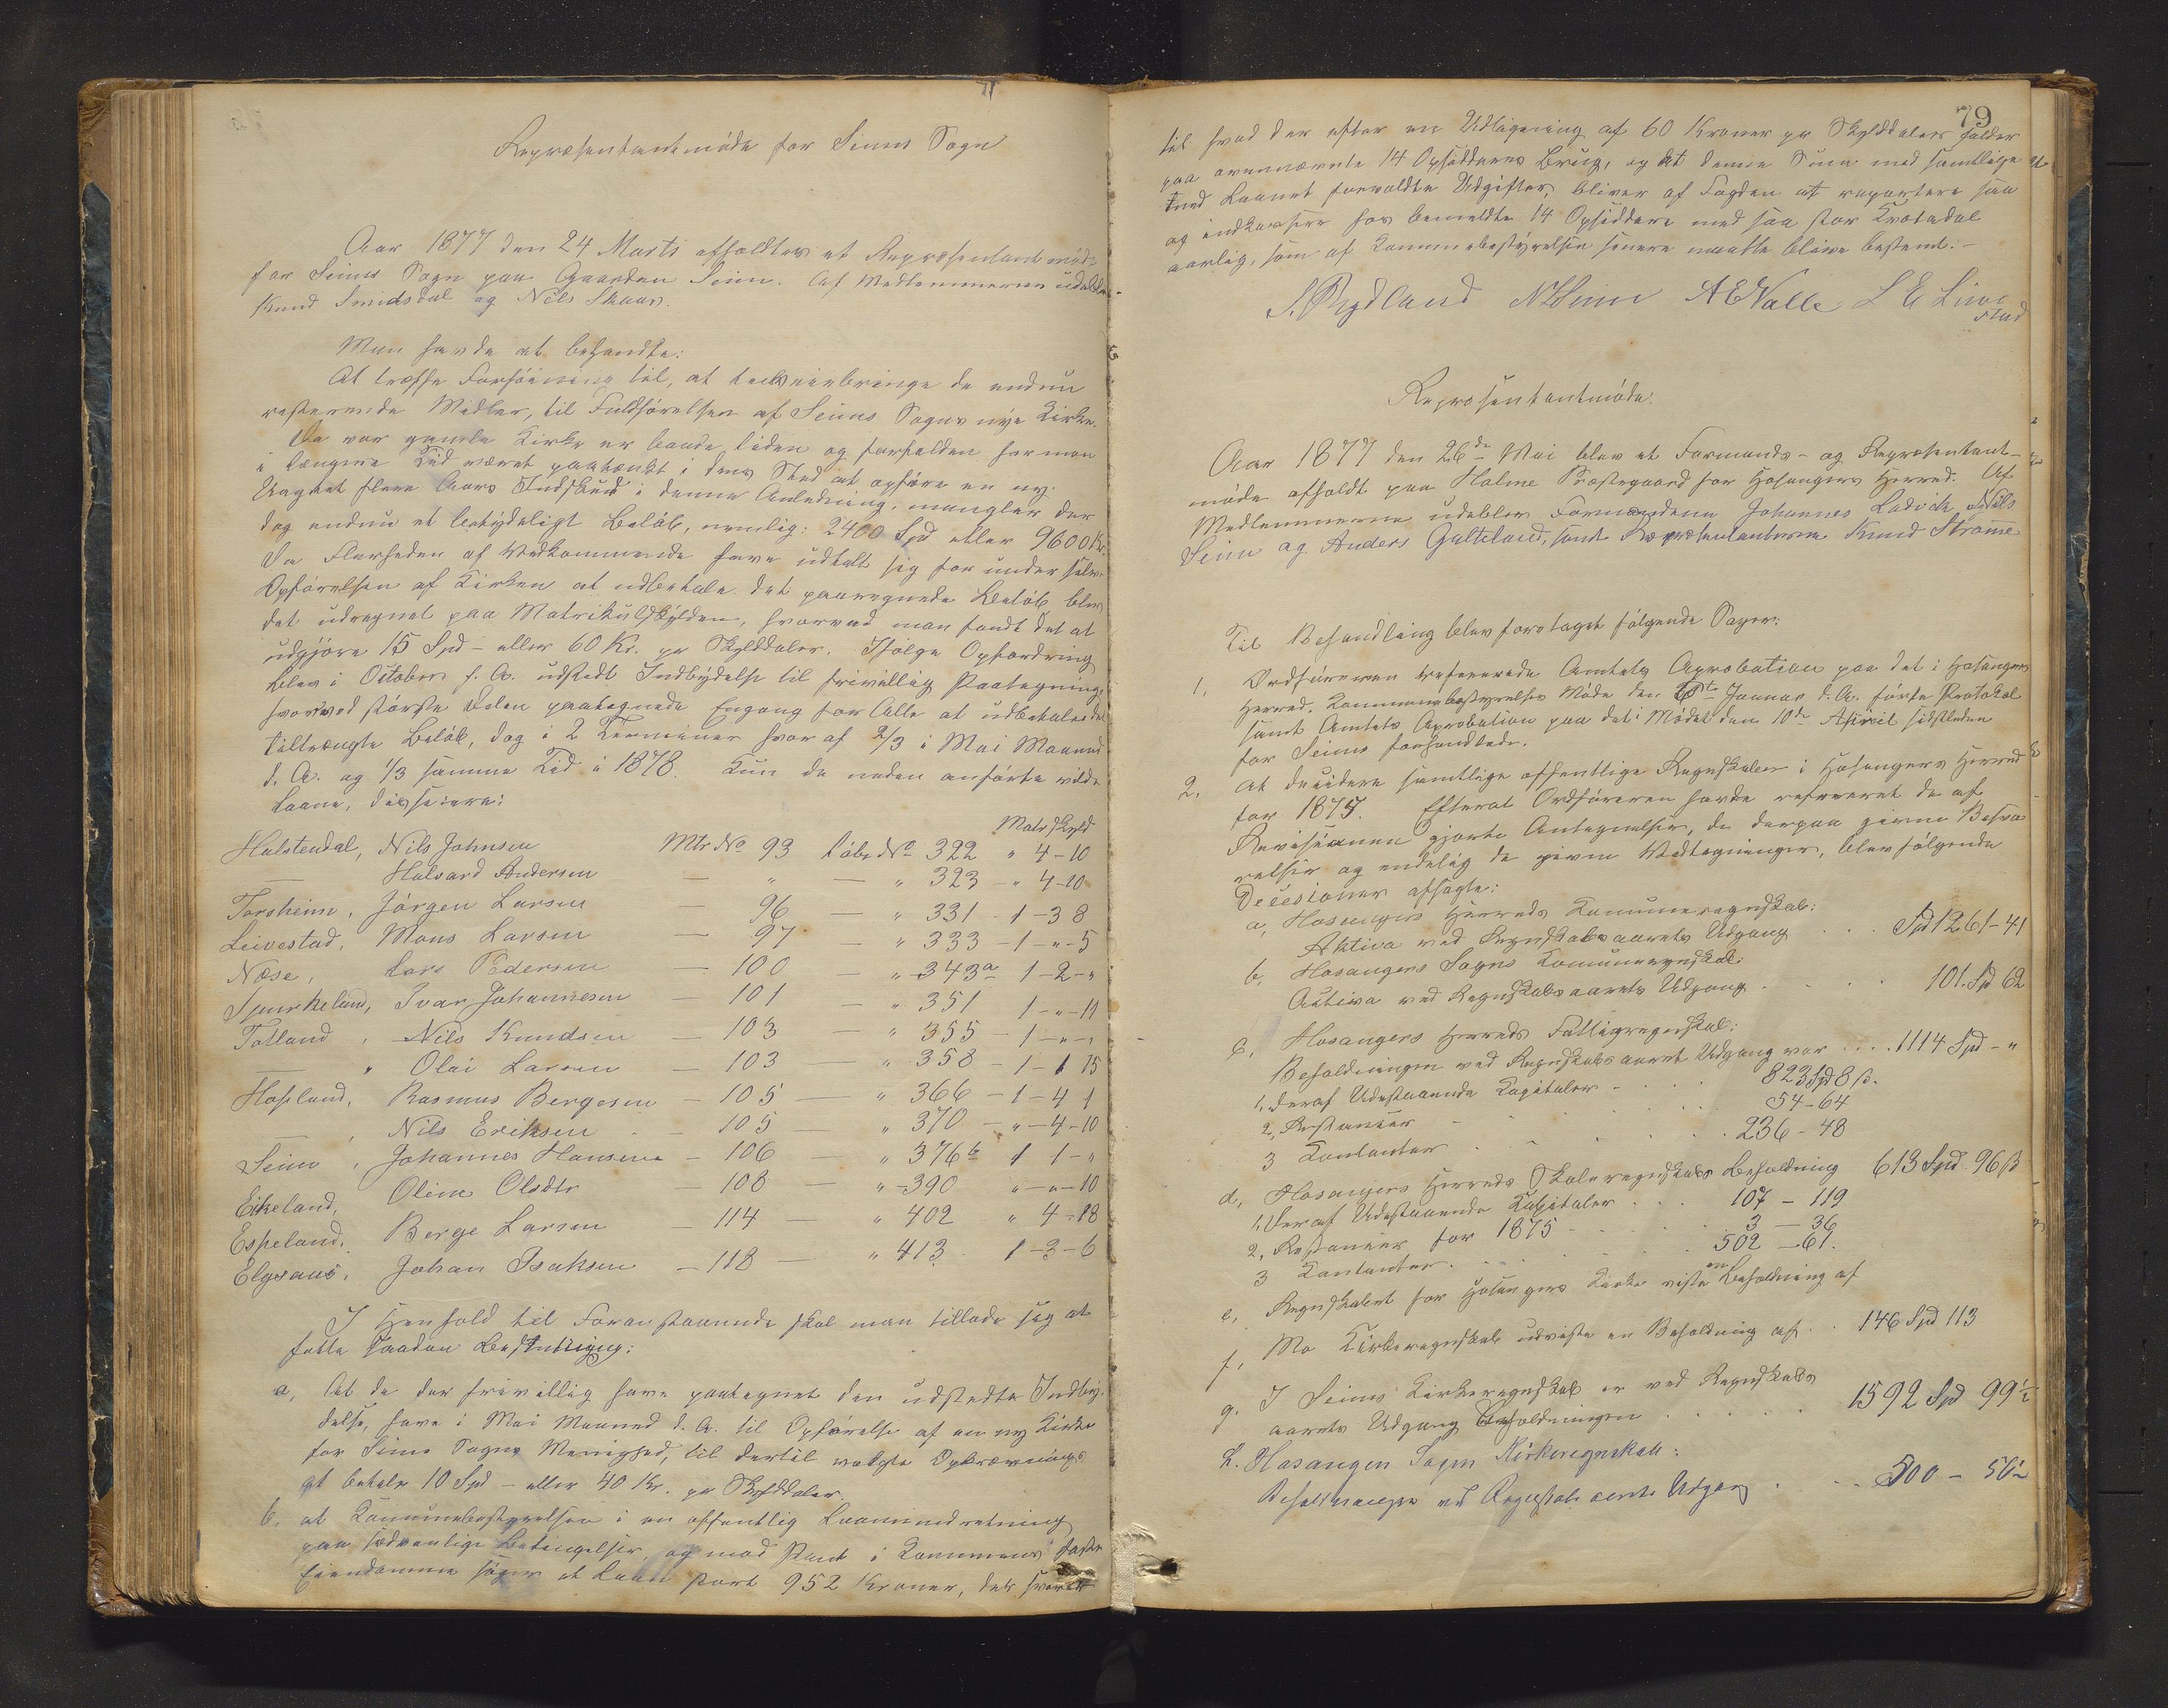 Repræsentantmöde for Seims Sogn
Aar 1877 den 24 Marts afholdtes et Repræsentantmöde
for Seims Sogn paa Gaarden Seim. Af Medlemmerne udeblev
Knud Smidsdal og Nils Skaar.
Man havde at behandle:
At træffe Forföining til, at tilveiebringe de endnu
resterende Midler, til Fuldförelsen af Seims Sogns nye Kirke.
Da vor gamle Kirke er baade liden og forfalden har man
i længere Tid været paatænkt i dens Sted at opföre en ny.
Uagtet flere Aars Indskud i denne Anledning, mangler der
dog endnu et betydeligt Belöb, nemlig: 2400 Spd eller 9600 Kr.
Da Flerheden af Vedkommende have udtalt sig for under selve
Opförelsen af Kirken at udbetale det paaregnede Belöb, blev
det udregnet paa Matrikulskylden, hvorved man fandt det at
udgjöre 15 Spd - eller 60 Kr. pr Skylddaler. Ifölge Opfordring
blev i October f. A. udstedt Indbydelse til frivillig Paategning,
hvorved störste Delen paategnede Engang for Alle at udbetale det
tiltrængte Belöb, dog i 2 Terminer hvoraf 2/3 i Mai Maaned
d. A. og 1/3 samme Tid i 1878. Kun de neden anförte vilde
laane, disse ere:
Matr Skyld
Halstendal, Nils Johnsen Mtr No 93 Löbe No 322 " 4-10
— Halvard Andersen — " — " 323 - " 4-10
Torsheim, Jörgen Larsen — 96 — " 331 - 1-3 8
Leivestad, Mons Larsen — 97 — " 333 - 1-"-5
Næse, Lars Pedersen — 100 — " 343a 1-2-"
Spurkeland, Ivar Johannesen — 101 — " 351 1-"-19
Totland, Nils Knudsen — 103 — " 355 - 1-"-"
— " Olai Larsen — 103 — " 358 - 1-1 15
Hopland, Rasmus Bergesen — 105 — " 366 - 1-4 1
— , Nils Eriksen — 105 — " 370 - "-4-10
Seim, Johannes Hansen — 106 — " 376b 1 1-"
Eikeland, Oline Olsdtr — 108 — " 390 "-"-10
Espeland, Berge Larsen — 114 — " 402 " 4-18
Elgsaas, Johan Isaksen — 118 — " 413 1-3-6
I Henhold til Foranstaaende skal man tillade sig at
fatte saadan Beslutning:
a, At de der frivillig have paategnet den udstedte Indby-
delse, have i Mai Maaned d. A. til Opförelse af en ny Kirke
for Seims Sogns Menighed, til dertil valgte Opkrævnings
at betale 10 Spd - eller 40 Kr. pr Skylddaler.
b. at Kommunebestyrelsen i en offentlig Laaneindretning
paa sædvanlige Betingelser og mod Pant i Kommunens faste
Eiendomme söger et Laan stort 952 Kroner, der svarer
79
til hvad der efter en Udligning af 60 Kroner pr Skylddaler falder
paa ovennævnte 14 Opsidderes Brug, og at denne Sum med samtlige
ved Laanet forvoldte Udgifter, bliver af Fogden at repartere paa
og indkassere hos bemeldte 14 Opsiddere med saa stor Qvotadel
aarlig, som af Kommunebestyrelsen senere maatte blive bestemt. -
S. Rydland N Seim A E Valle L E Live
stad
Repræsentantmöde:
Aar 1877 den 26de Mai blev et Formands- og Repræsentant-
möde afholdt paa Holme Præstegaard for Hosangers Herred. Af
Medlemmerne udeblev Formændene Johannes Ladvik, Nils
Seim og Anders Gulteland, samt Repræsentanterne Knud Strömme
Til Behandling blev foretaget fölgende Sager:
1, Ordföreren refererede Amtets Aprobation paa det i Hosangers
Herred. Kommunebestyrelses Möde den Januar d. A. förte Protokol
samt Amtets Aprobation paa det i Mödet den 10de April sidstleden
for Seims forhandlede.
2, At decidere samtlige offentlige Regnskaber i Hosangers Herred
for 1875. Efterat Ordföreren havde refereret de af
Revisionen gjorte Antegnelser, de derpaa givne Besva-
relser og endelig de givne Vedtegninger, blev fölgende
Decisioner afsagte:
a, Hosangers Herreds Kommuneregnskab:
Aktiva ved Regnskabsaarets Udgang . . . Spd 1261-41
b, Hosangers Sogns Kommuneregnskab:
Activa ved Regnskabsaarets Udgang . . . . 101. Spd 62
c, Hosangers Herreds Fattigregnskab:
Beholdningen ved Regnskabsaaret Udgang var . . . . 1114 Spd - "
1, deraf Udestaaende Kapitaler - . . . 823 Spd 8 ß.
2, Restancer - . . . 54-64
3 Kontanter . . . 236-48
d, Hosangers Herreds Skoleregnskabs Beholdning 613 Spd 96 ß
1, Deraf Udestaaende Kapitaler . . . 107-119
2, Restancer for 1875 - . . . 3-36
3 Kontanter. . . . 502-61.
e, Regnskabet for Hosangers Kirke viste en Beholdning af
f, Mo Kirkeregnskab udviste en Beholdning af . . 146 Spd 113
g. I Seims Kirkeregnskab er ved Regnskabs
aarets Udgang Beholdningen . . . . . 1592 Spd 99½
h. Hosanger Sogns Kirkeregnskab:
Beholdningen ved Regnskabs aarets Udgang . . . 500 - 56½